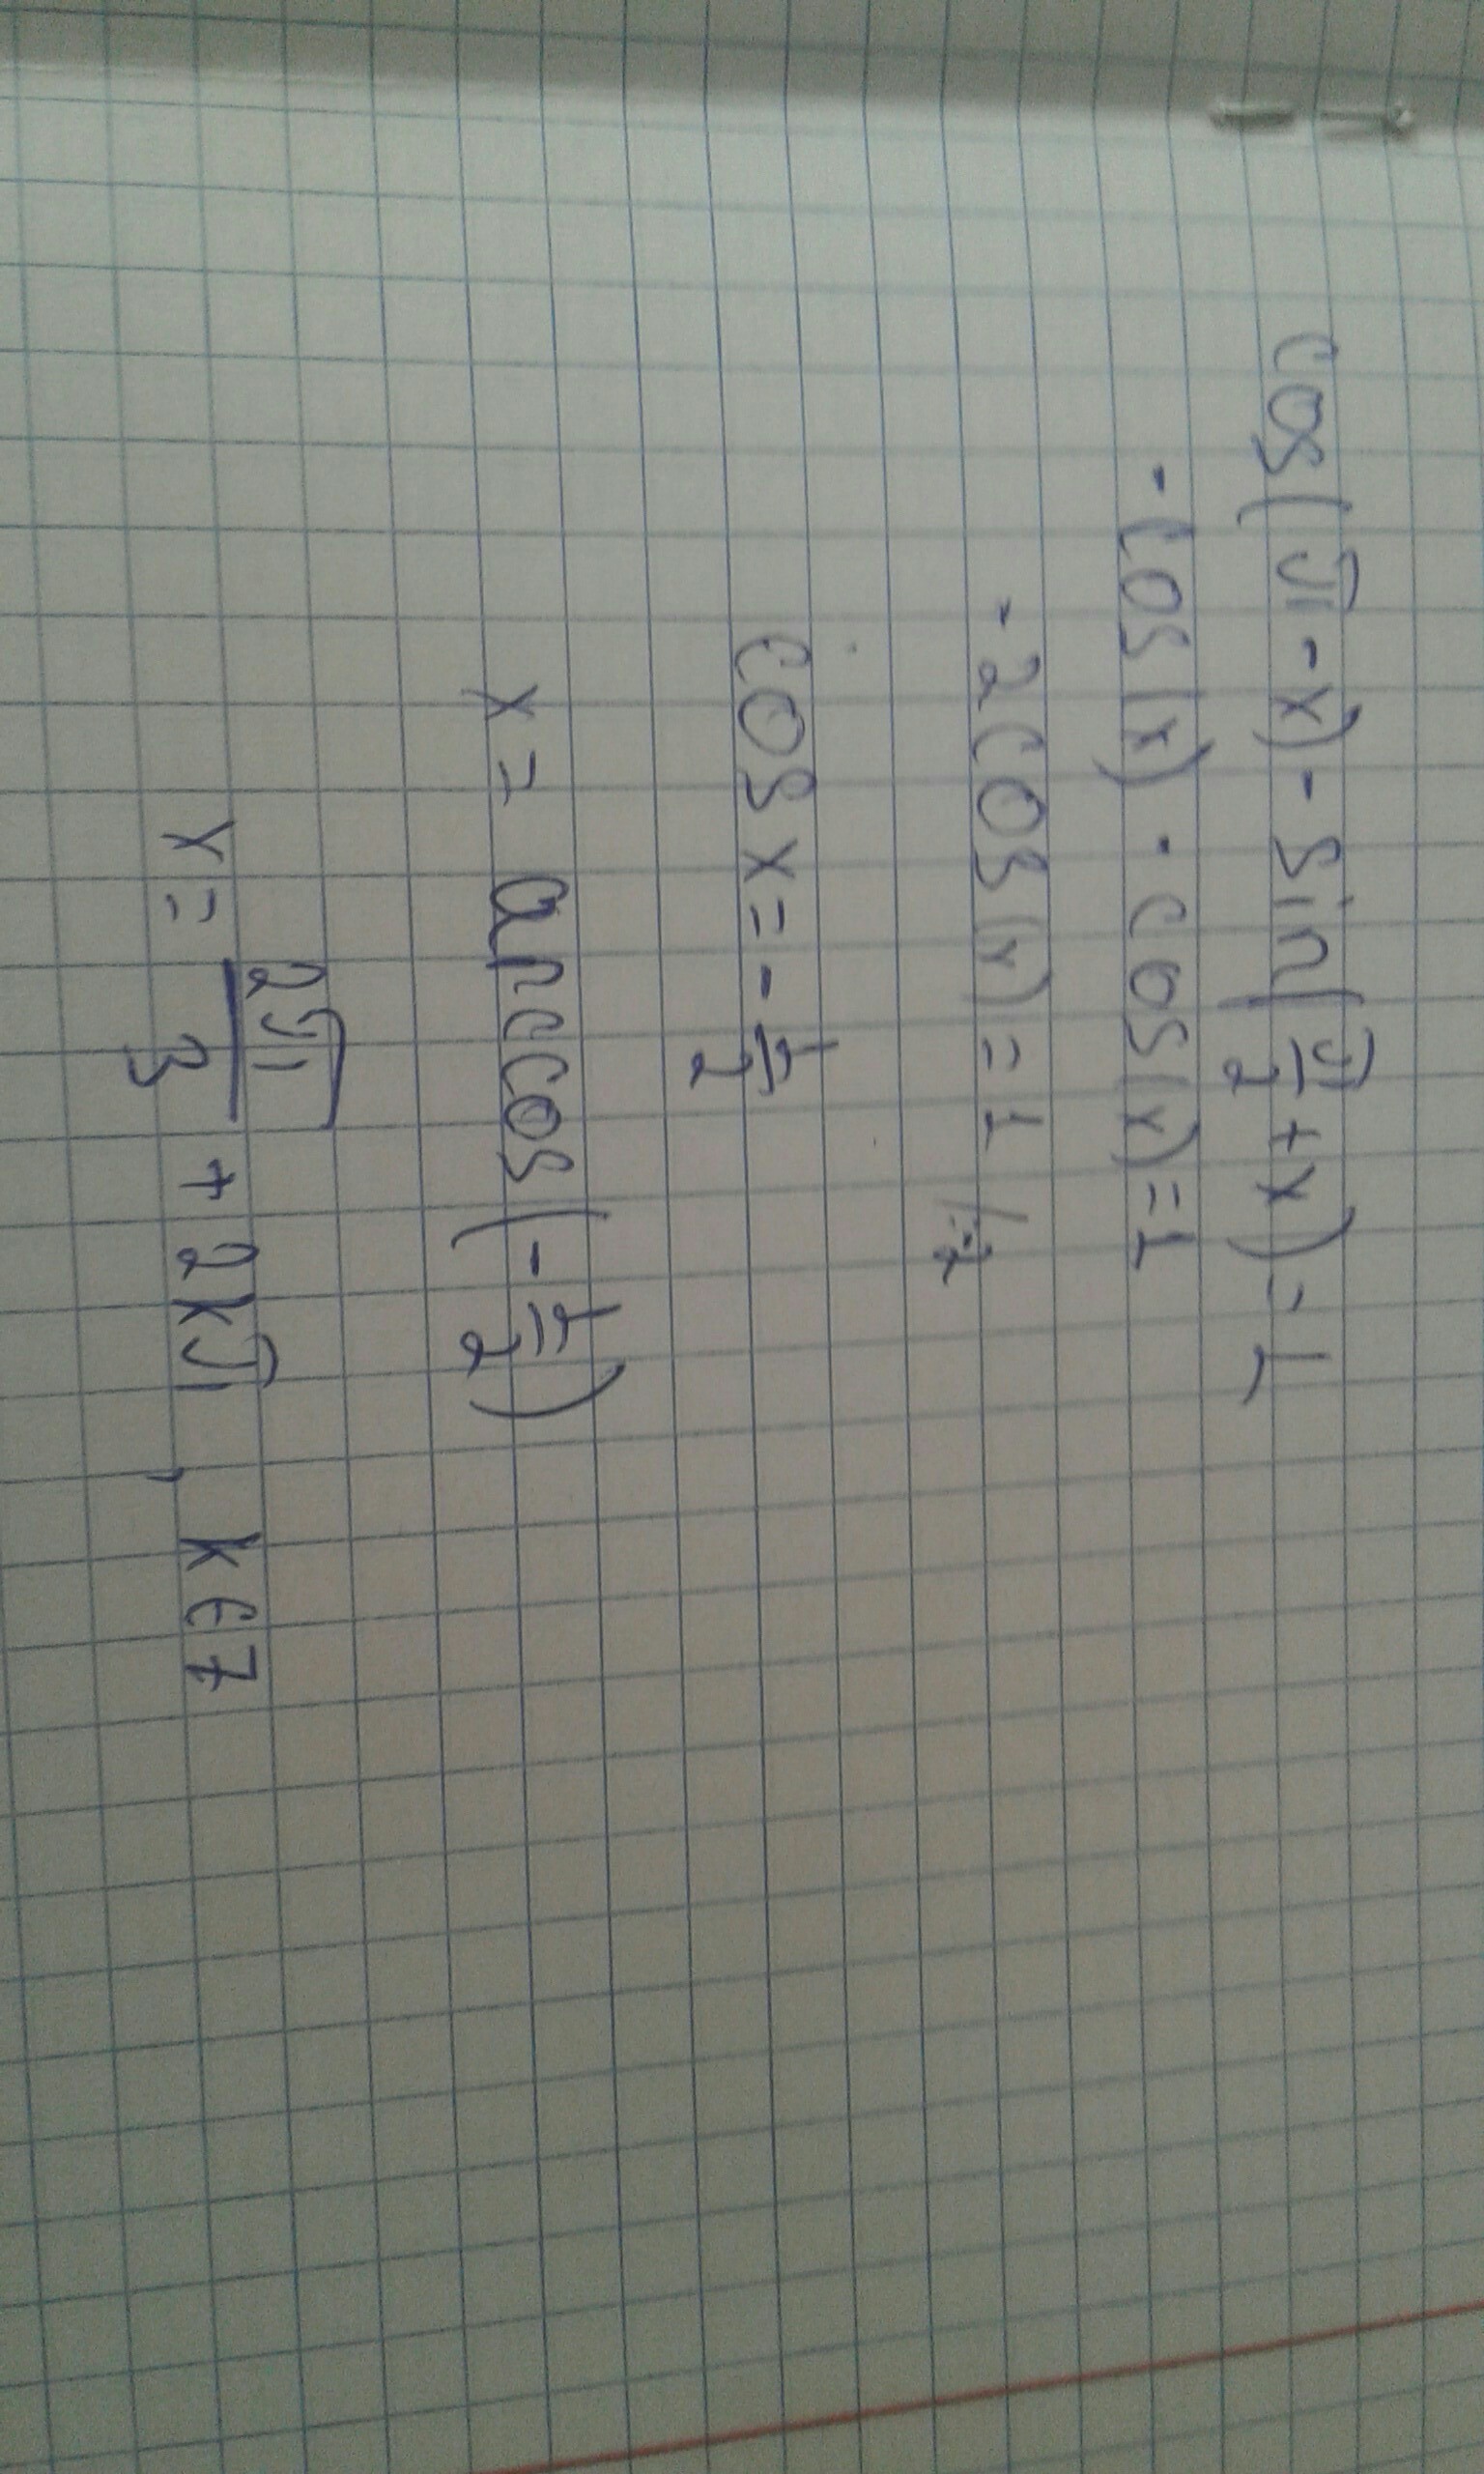 cos(π-x)-sin(π/2+x)=1
-cos(x)-cos(x)=1
-2cos(x)=1 /:2
cos x=-1/2
x= arccos(-1/2)
x= 2π/3 + 2kπ, k∈Z